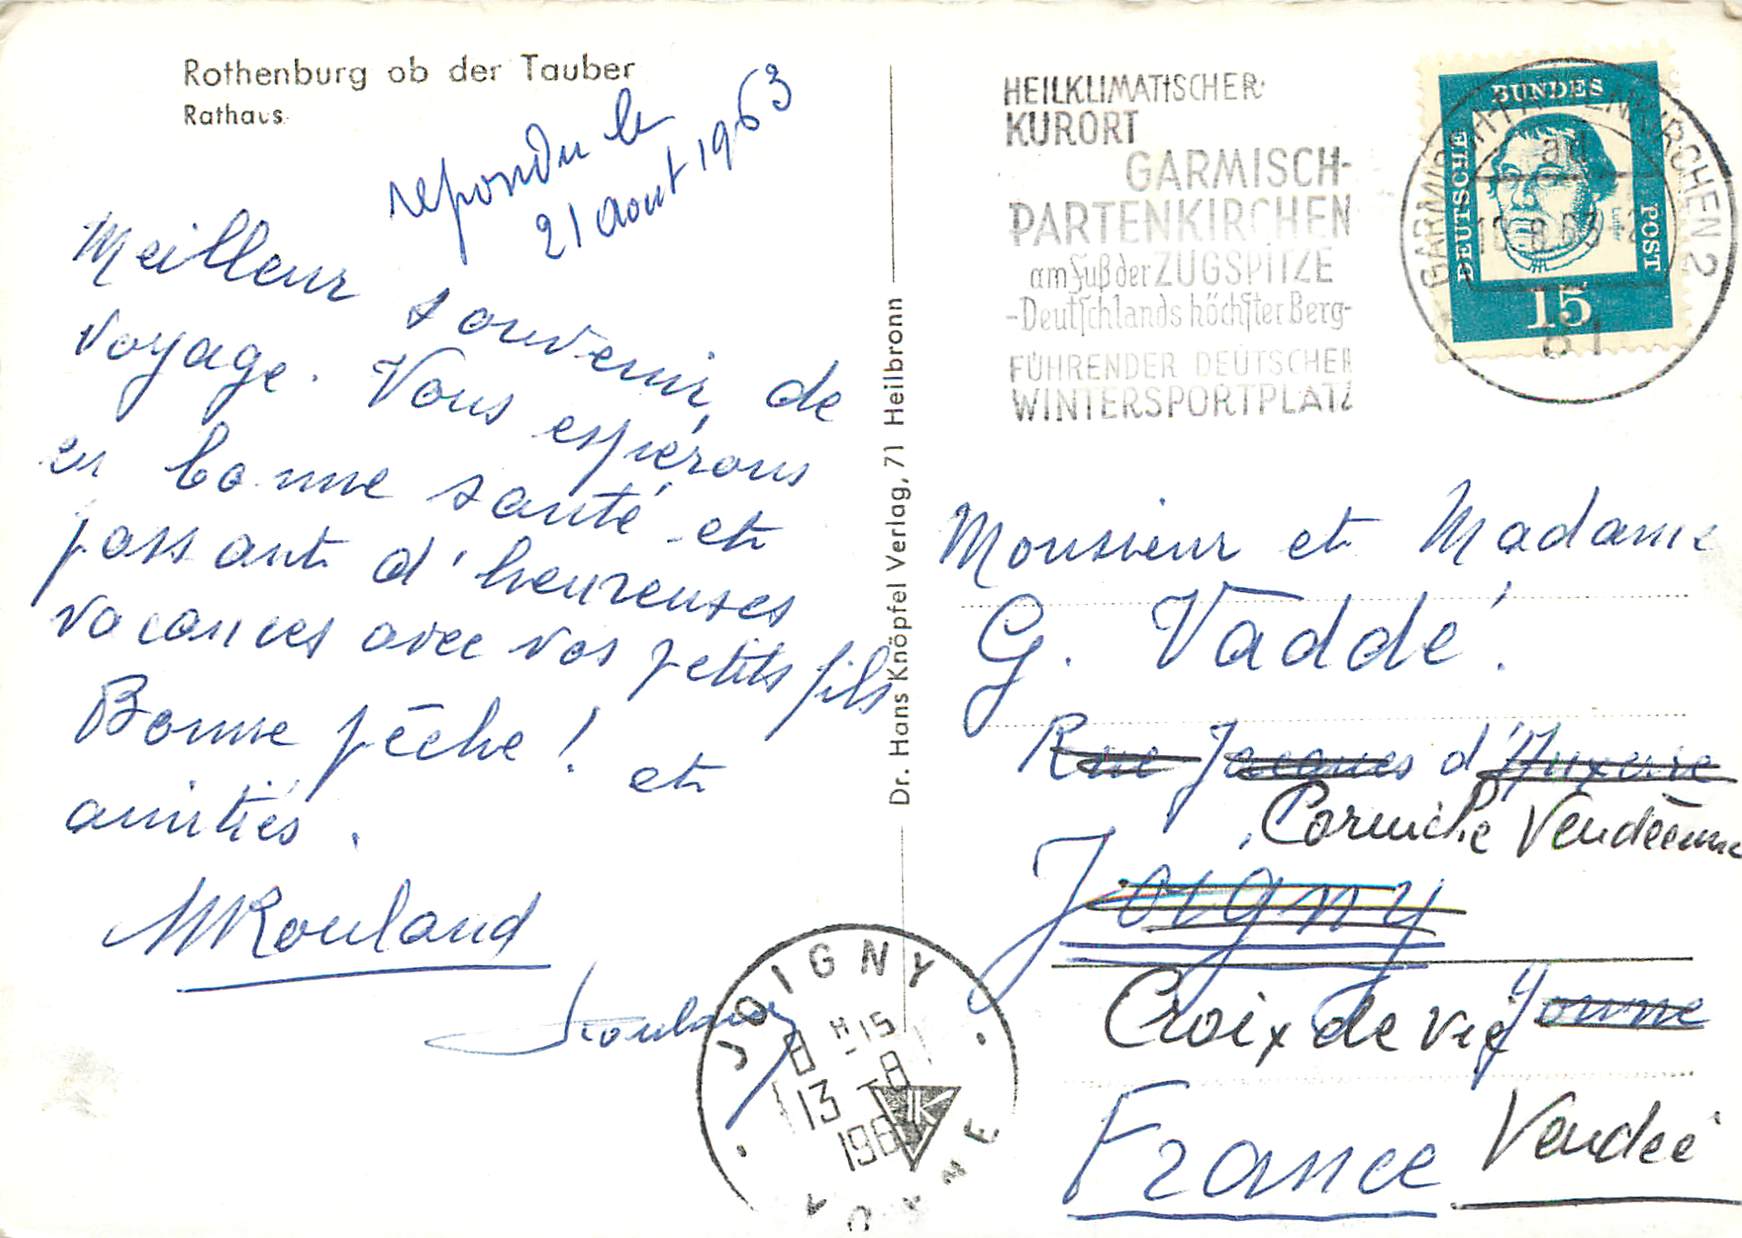 Rothenburg ob der Tauber
Rathaus
repondu le
21 aout 1963
Meilleur souvenir de
voyage. Vous espérons
en bonne santé et
passant d'heureuses
vacances avec vos petits fils
Bonne pêche ! et
amitiés.
MRouland
Rouland
Dr. Hans Knöpfel Verlag, 71 Heilbronn
HEILKLIMATISCHER
KURORT
GARMISCH-
PARTENKIRCHEN
am Fuß der ZUGSPITZE
-Deutschlands höchster Berg-
FÜHRENDER DEUTSCHER
WINTERSPORTPLATZ
GARMISCH-PARTENKIRCHEN 2
ad
DEUTSCHE
BUNDES
POST
Luther
15
Monsieur et Madame
G. Vaddé.
Rue Jacques d'Auxerre
Corniche Vendéenne
Joigny
Croix de vie Yonne
France Vendée
JOIGNY
8 H 15
13 -8
196
YONNE